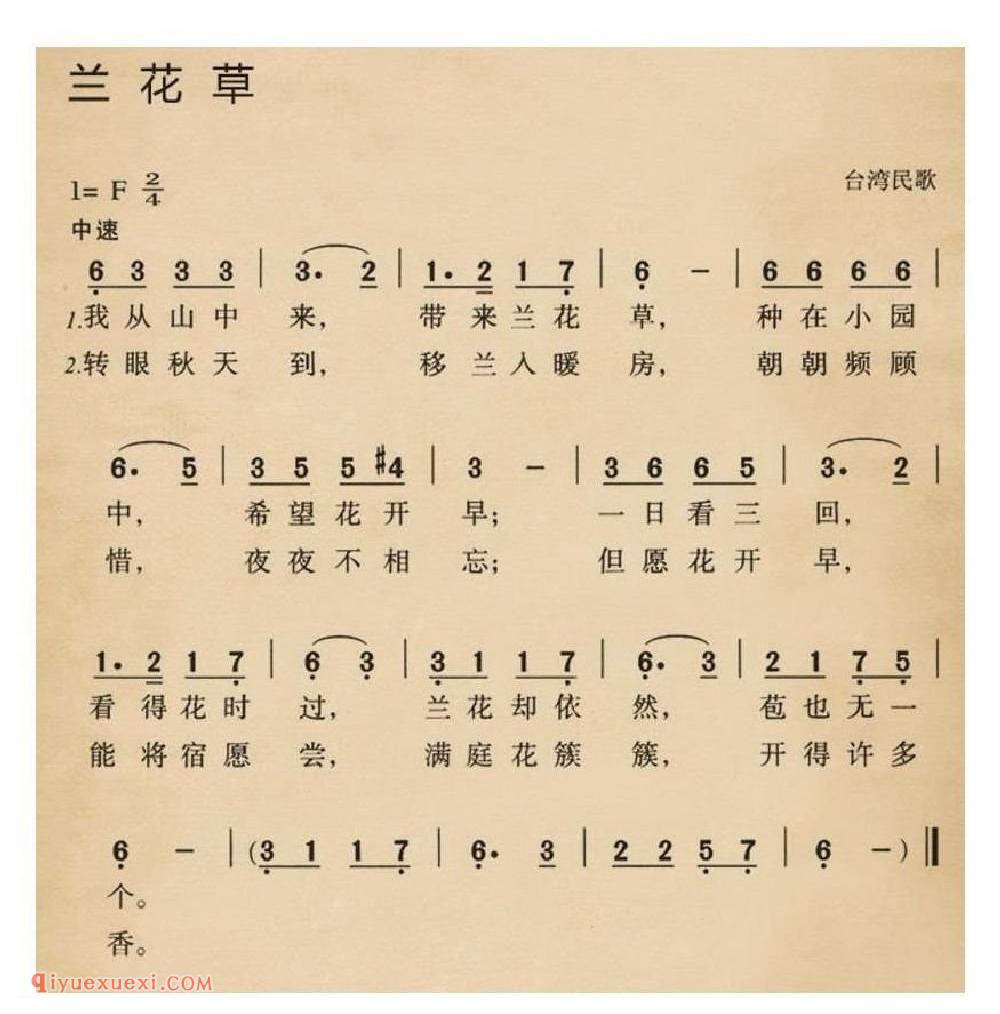 兰花草
1= F 2/4
台湾民歌
中速
6 3 3 3 | 3. 2 | 1. 2 1 7 | 6 – | 6 6 6 6 |
1.我从山中 来, 带来兰花 草, 种在小园
2.转眼秋天 到, 移兰入暖 房, 朝朝频顾
6. 5 | 3 5 5 #4 | 3 – | 3 6 6 5 | 3. 2 |
中, 希望花开 早; 一日看三 回,
惜, 夜夜不相 忘; 但愿花开 早,
1. 2 1 7 | 6 3 | 3 1 1 7 | 6. 3 | 2 1 7 5 |
看得花时 过, 兰花却依 然, 苞也无一
能将宿愿 尝, 满庭花簇 簇, 开得许多
6 – | (3 1 1 7 | 6. 3 | 2 2 5 7 | 6 –) ‖
个。
香。
qiyuexuexi.com